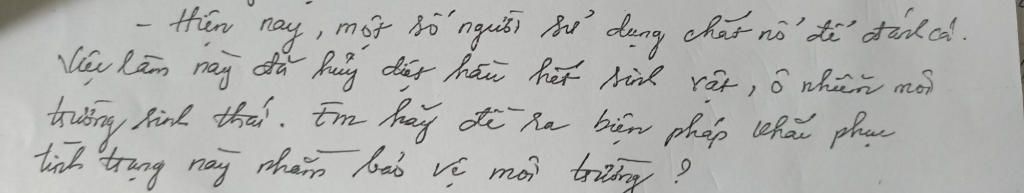 - Hiện nay, một số người sử dụng chất nổ để đánh cá.
Việc làm này đã hủy diệt hầu hết sinh vật, ô nhiễm môi
trường sinh thái. Em hãy đề ra biện pháp khắc phục
tình trạng này nhằm bảo vệ môi trường?